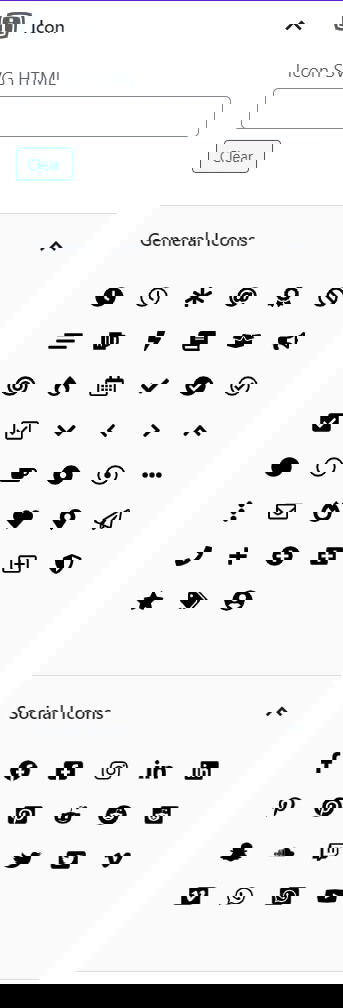 Icon
Icon S
VG HTML
Clear
Clear
General Icons
Social Icons